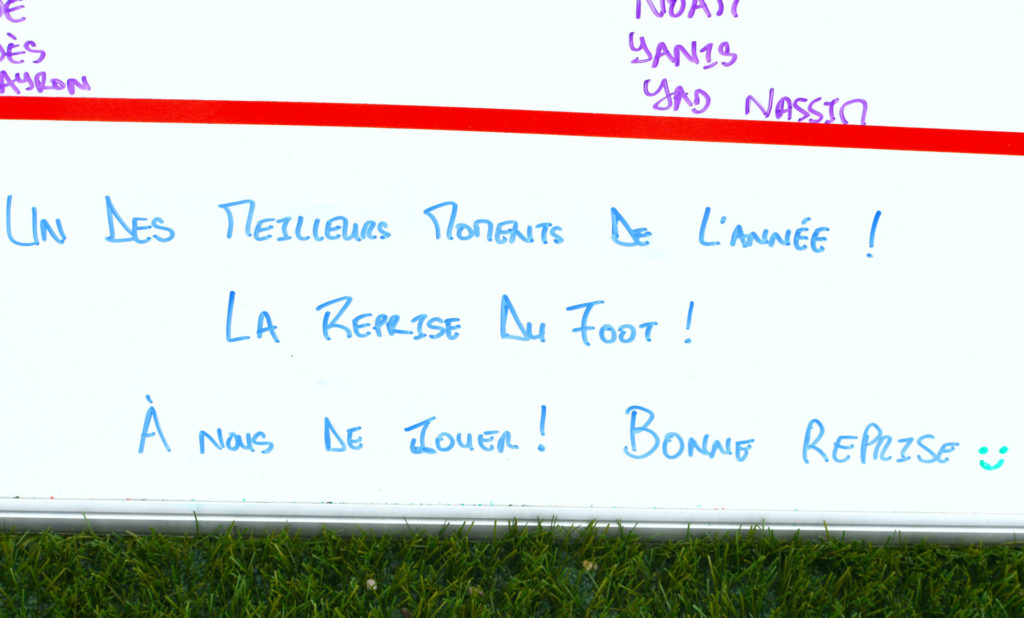 YANIS
AYRON
YAD NASSIM
UN DES MEILLEURS MOMENTS DE L'ANNÉE !
LA REPRISE DU FOOT !
À NOUS DE JOUER ! BONNE REPRISE